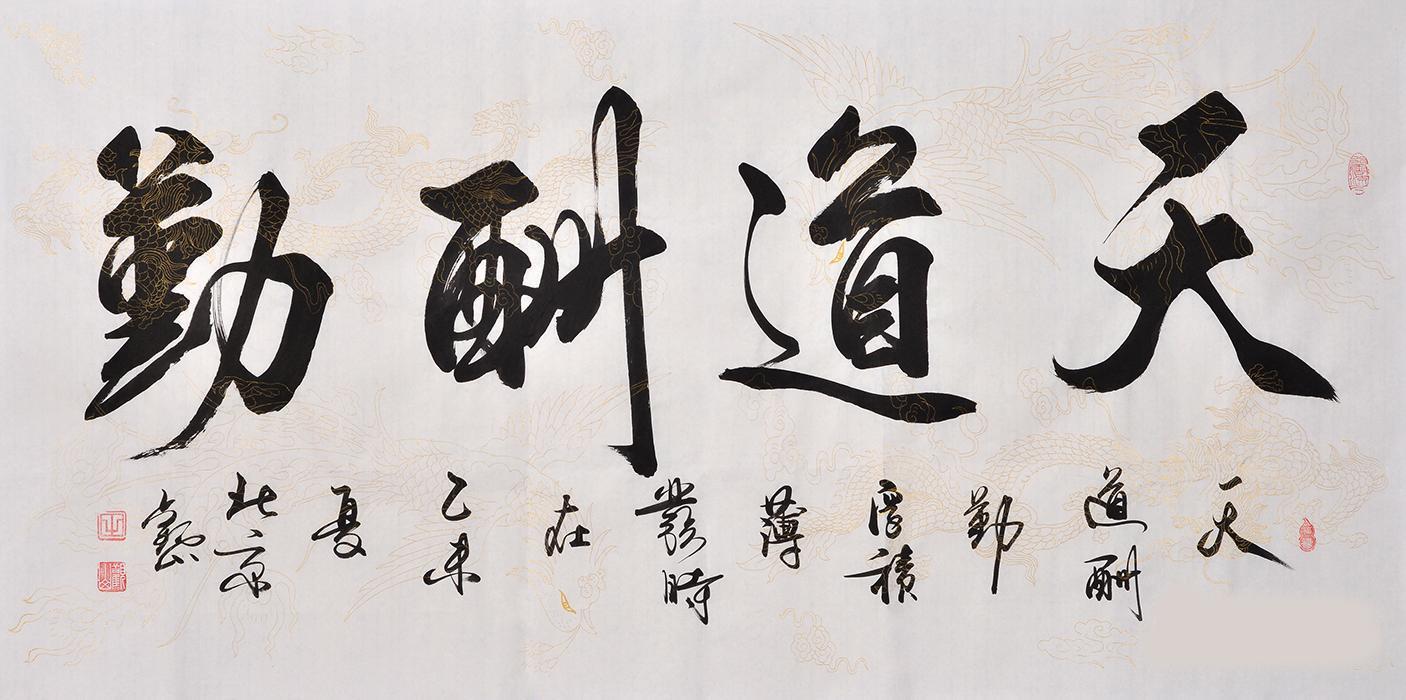 天道酬勤
天
道酬
勤
厚積
薄
發時
在
乙未
夏
北京